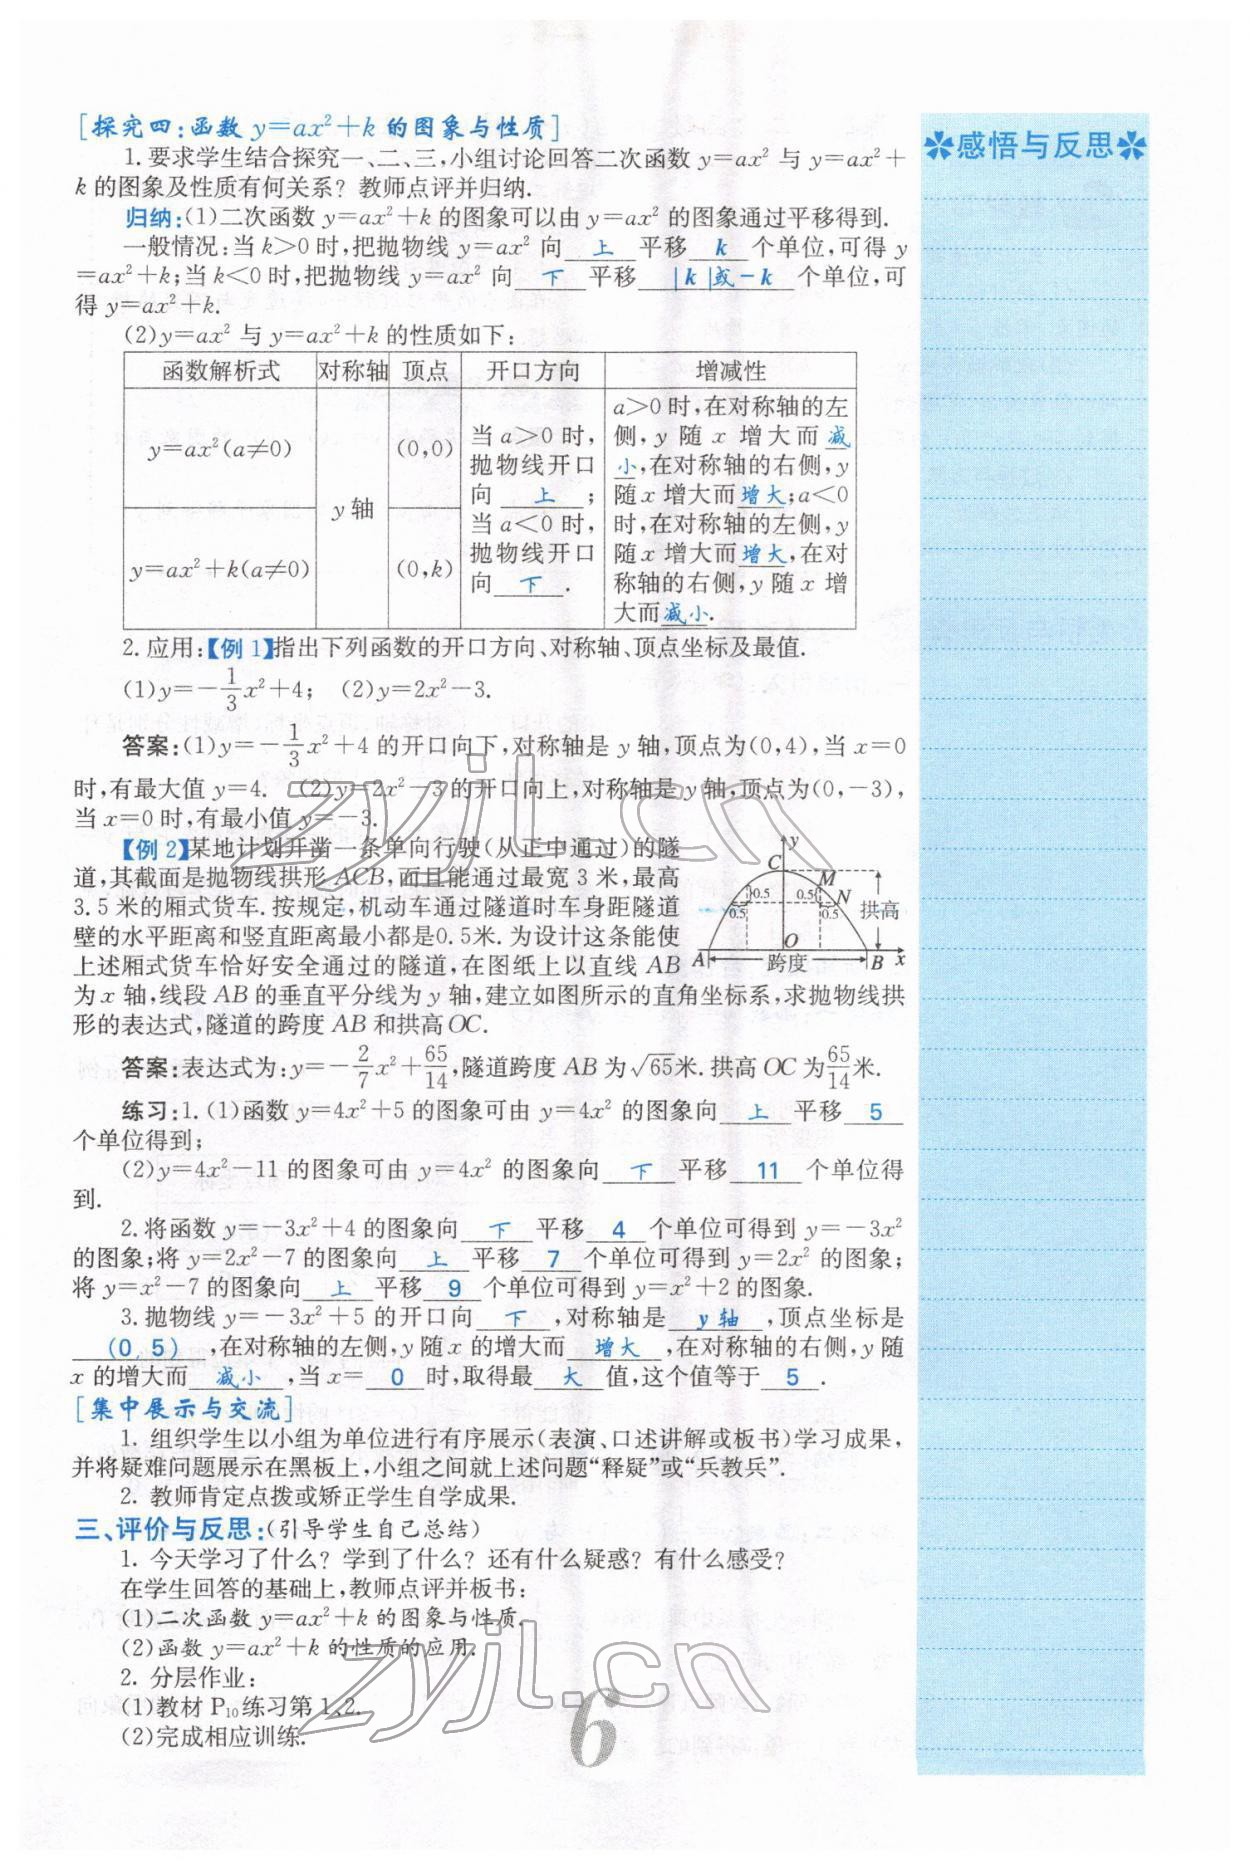 [探究四:函数 y=ax²+k 的图象与性质]
1. 要求学生结合探究一、二、三,小组讨论回答二次函数 y=ax² 与 y=ax²+
k 的图象及性质有何关系? 教师点评并归纳.
归纳:(1)二次函数 y=ax²+k 的图象可以由 y=ax² 的图象通过平移得到.
一般情况:当 k>0 时,把抛物线 y=ax² 向 上 平移 k 个单位,可得 y
=ax²+k;当 k<0 时,把抛物线 y=ax² 向 下 平移 |k|或-k 个单位,可
得 y=ax²+k.
(2)y=ax² 与 y=ax²+k 的性质如下:
函数解析式 对称轴 顶点 开口方向 增减性
y=ax²(a≠0)
y=ax²+k(a≠0)
y 轴
(0,0)
(0,k)
当 a>0 时,
抛物线开口
向 上 ;
当 a<0 时,
抛物线开口
向 下 .
a>0 时,在对称轴的左
侧,y 随 x 增大而 减
小,在对称轴的右侧,y
随 x 增大而 增大;a<0
时,在对称轴的左侧,y
随 x 增大而 增大,在对
称轴的右侧,y 随 x 增
大而 减小.
2. 应用:【例 1】指出下列函数的开口方向、对称轴、顶点坐标及最值.
(1)y=-1/3x²+4; (2)y=2x²-3.
答案:(1)y=-1/3x²+4 的开口向下,对称轴是 y 轴,顶点为(0,4),当 x=0
时,有最大值 y=4. (2)y=2x²-3的开口向上,对称轴是 y 轴,顶点为(0,-3),
当 x=0 时,有最小值 y=-3.
【例 2】某地计划开凿一条单向行驶(从正中通过)的隧
道,其截面是抛物线拱形 ACB,而且能通过最宽 3 米,最高
3.5 米的厢式货车. 按规定,机动车通过隧道时车身距隧道
壁的水平距离和竖直距离最小都是0.5米. 为设计这条能使
上述厢式货车恰好安全通过的隧道,在图纸上以直线 AB
为 x 轴,线段 AB 的垂直平分线为 y 轴,建立如图所示的直角坐标系,求抛物线拱
形的表达式,隧道的跨度 AB 和拱高 OC.
y
C
M
0.5 0.5 N
0.5 0.5
拱高
O
A 跨度 B x
答案:表达式为:y=-2/7x²+65/14,隧道跨度 AB 为√65米. 拱高 OC 为65/14米.
练习:1. (1)函数 y=4x²+5 的图象可由 y=4x² 的图象向 上 平移 5
个单位得到;
(2)y=4x²-11 的图象可由 y=4x² 的图象向 下 平移 11 个单位得
到.
2. 将函数 y=-3x²+4 的图象向 下 平移 4 个单位可得到 y=-3x²
的图象;将 y=2x²-7 的图象向 上 平移 7 个单位可得到 y=2x² 的图象;
将 y=x²-7 的图象向 上 平移 9 个单位可得到 y=x²+2 的图象.
3. 抛物线 y=-3x²+5 的开口向 下 ,对称轴是 y 轴 ,顶点坐标是
(0,5) ,在对称轴的左侧,y 随 x 的增大而 增大 ,在对称轴的右侧,y 随
x 的增大而 减小 ,当 x= 0 时,取得最 大 值,这个值等于 5 .
[集中展示与交流]
1. 组织学生以小组为单位进行有序展示(表演、口述讲解或板书)学习成果,
并将疑难问题展示在黑板上,小组之间就上述问题“释疑”或“兵教兵”.
2. 教师肯定点拨或矫正学生自学成果.
三、评价与反思:(引导学生自己总结)
1. 今天学习了什么? 学到了什么? 还有什么疑惑? 有什么感受?
在学生回答的基础上,教师点评并板书:
(1)二次函数 y=ax²+k 的图象与性质.
(2)函数 y=ax²+k 的性质的应用.
2. 分层作业:
(1)教材 P₁₀练习第 1、2.
(2)完成相应训练.
6
感悟与反思
zyjl.cn
zyjl.cn